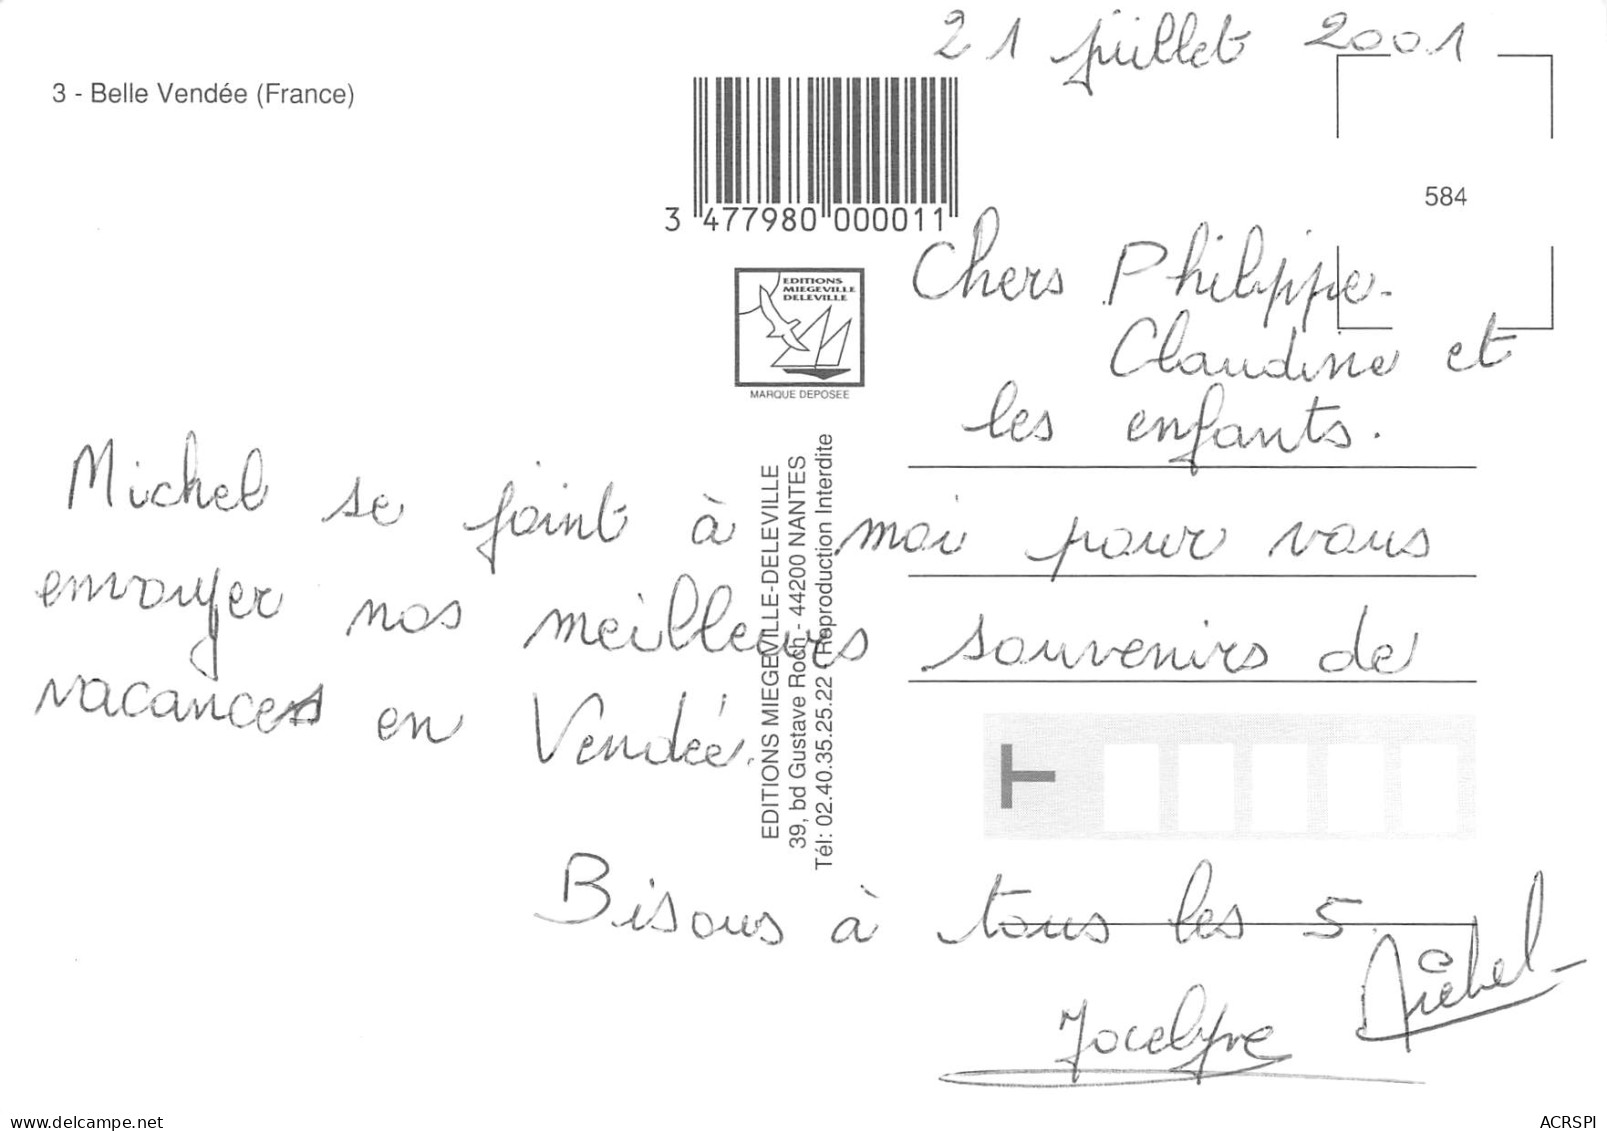 21 juillet 2001
3 - Belle Vendée (France)
584
3 477980 000011
Chers Philippe -
Claudine et
les enfants.
EDITIONS
MIEGEVILLE
DELEVILLE
MARQUE DEPOSEE
Michel se joint à moi pour vous
envoyer nos meilleurs souvenirs de
vacances en Vendée.
EDITIONS MIEGEVILLE-DELEVILLE
39, bd Gustave Roch - 44200 NANTES
Tél: 02.40.35.25.22 Reproduction Interdite
Bisous à tous les 5.
Jocelyne
Michel
delcampe.net
ACRSPI